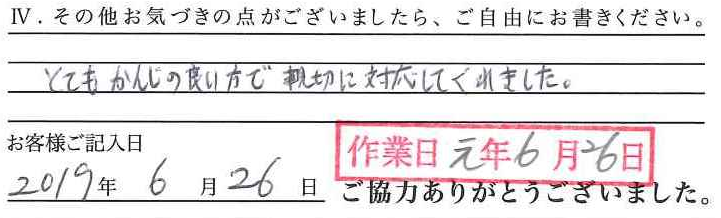 Ⅳ．その他お気づきの点がございましたら、ご自由にお書きください。
とてもかんじの良い方で親切に対応してくれました。
お客様ご記入日
作業日 元年6月26日
2019年 6月26日
ご協力ありがとうございました。